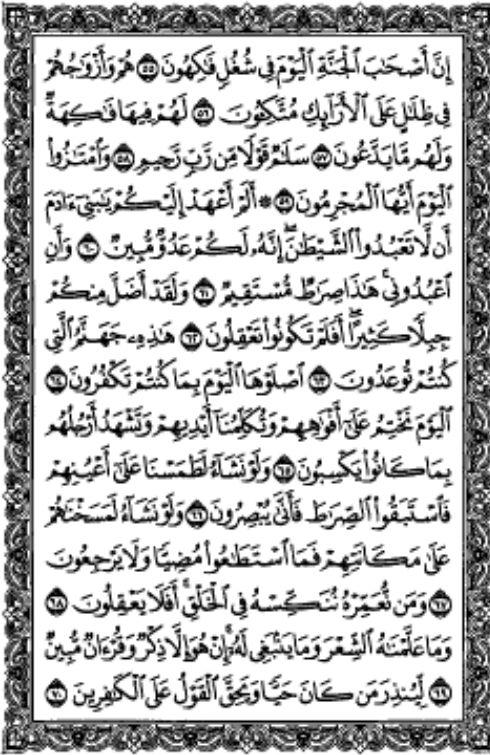 إِنَّ أَصْحَٰبَ ٱلْجَنَّةِ ٱلْيَوْمَ فِى شُغُلٍ فَٰكِهُونَ ٥٥ هُمْ وَأَزْوَٰجُهُمْ
فِى ظِلَٰلٍ عَلَى ٱلْأَرَآئِكِ مُتَّكِـُٔونَ ٥٦ لَهُمْ فِيهَا فَٰكِهَةٌ
وَلَهُم مَّا يَدَّعُونَ ٥٧ سَلَٰمٌ قَوْلًا مِّن رَّبٍّ رَّحِيمٍ ٥٨ وَٱمْتَٰزُوا۟
ٱلْيَوْمَ أَيُّهَا ٱلْمُجْرِمُونَ ٥٩ ۞ أَلَمْ أَعْهَدْ إِلَيْكُمْ يَٰبَنِىٓ ءَادَمَ
أَن لَّا تَعْبُدُوا۟ ٱلشَّيْطَٰنَ ۖ إِنَّهُۥ لَكُمْ عَدُوٌّ مُّبِينٌ ٦٠ وَأَنِ
ٱعْبُدُونِى ۚ هَٰذَا صِرَٰطٌ مُّسْتَقِيمٌ ٦١ وَلَقَدْ أَضَلَّ مِنكُمْ
جِبِلًّا كَثِيرًا ۖ أَفَلَمْ تَكُونُوا۟ تَعْقِلُونَ ٦٢ هَٰذِهِۦ جَهَنَّمُ ٱلَّتِى
كُنتُمْ تُوعَدُونَ ٦٣ ٱصْلَوْهَا ٱلْيَوْمَ بِمَا كُنتُمْ تَكْفُرُونَ ٦٤
ٱلْيَوْمَ نَخْتِمُ عَلَىٰٓ أَفْوَٰهِهِمْ وَتُكَلِّمُنَآ أَيْدِيهِمْ وَتَشْهَدُ أَرْجُلُهُم
بِمَا كَانُوا۟ يَكْسِبُونَ ٦٥ وَلَوْ نَشَآءُ لَطَمَسْنَا عَلَىٰٓ أَعْيُنِهِمْ
فَٱسْتَبَقُوا۟ ٱلصِّرَٰطَ فَأَنَّىٰ يُبْصِرُونَ ٦٦ وَلَوْ نَشَآءُ لَمَسَخْنَٰهُمْ
عَلَىٰ مَكَانَتِهِمْ فَمَا ٱسْتَطَٰعُوا۟ مُضِيًّا وَلَا يَرْجِعُونَ
٦٧ وَمَن نُّعَمِّرْهُ نُنَكِّسْهُ فِى ٱلْخَلْقِ ۖ أَفَلَا يَعْقِلُونَ ٦٨
وَمَا عَلَّمْنَٰهُ ٱلشِّعْرَ وَمَا يَنۢبَغِى لَهُۥٓ ۚ إِنْ هُوَ إِلَّا ذِكْرٌ وَقُرْءَانٌ مُّبِينٌ
٦٩ لِّيُنذِرَ مَن كَانَ حَيًّا وَيَحِقَّ ٱلْقَوْلُ عَلَى ٱلْكَٰفِرِينَ ٧٠